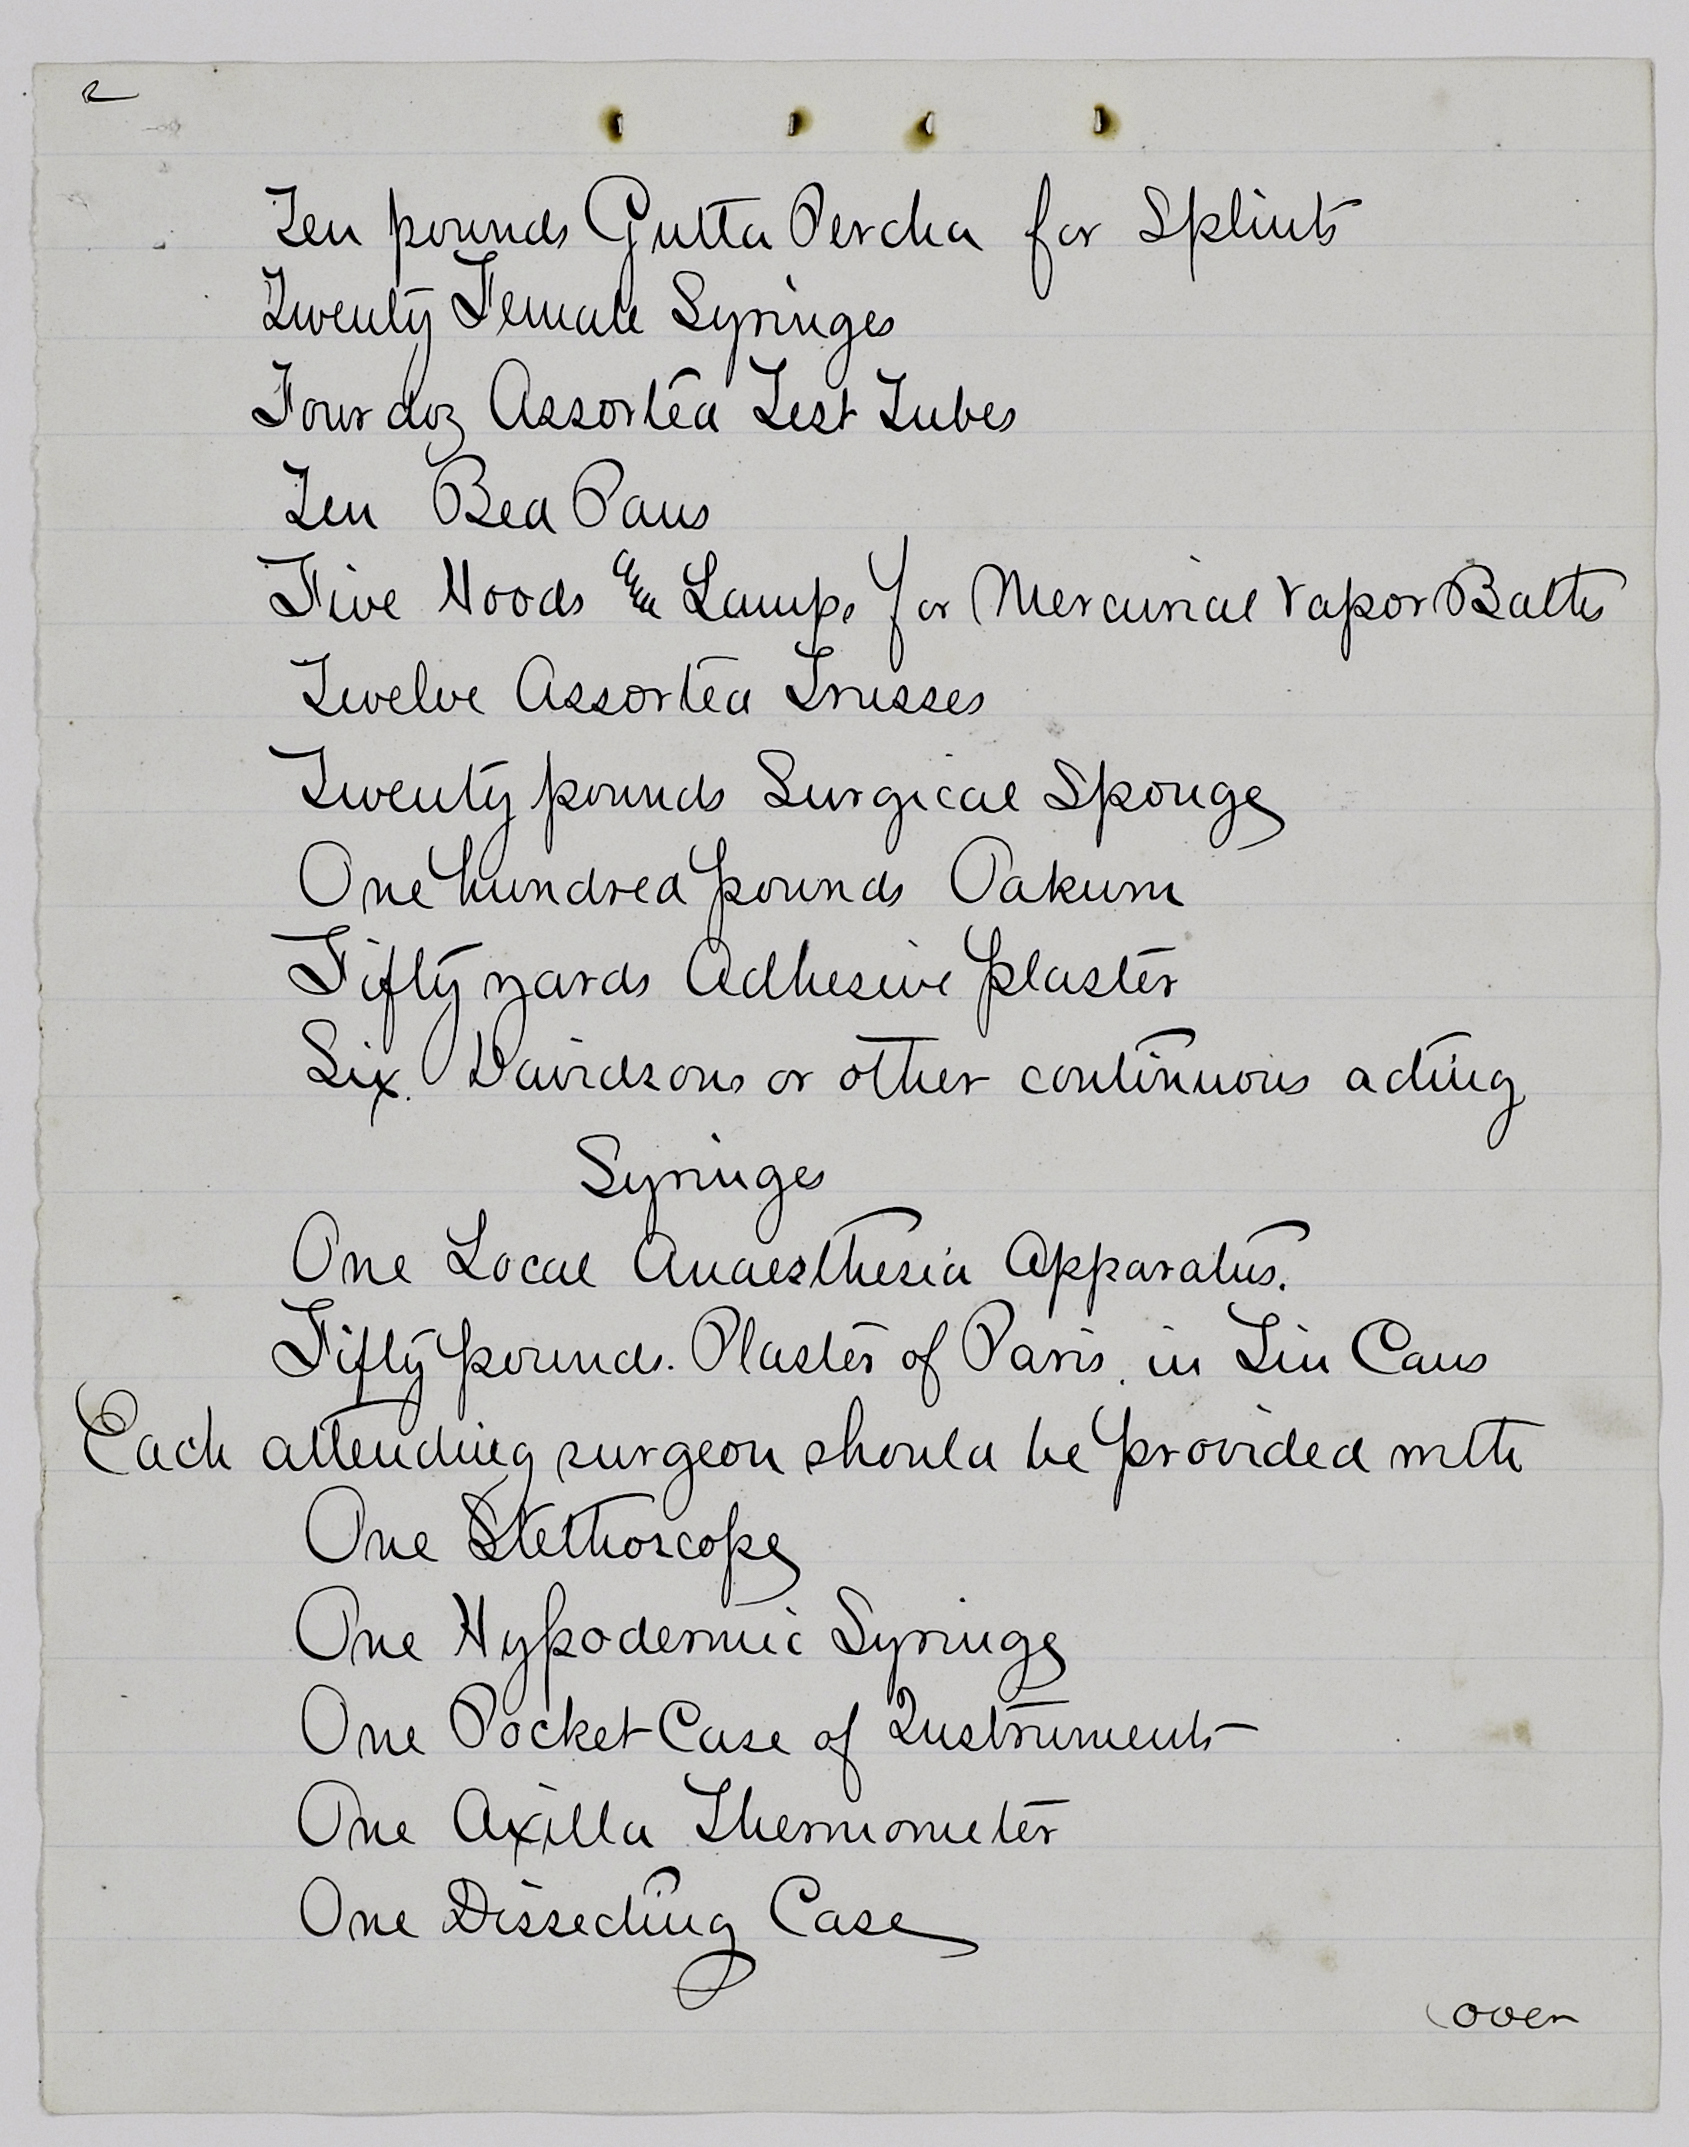 2
Ten pounds Gutta Percha for Splints
Twenty Female Syringes
Four doz Assorted Test Tubes
Ten Bed Pans
Five Hoods & Lamps for Mercurial Vapor Baths
Twelve Assorted Trusses
Twenty pounds Surgical Sponge
One hundred pounds Oakum
Fifty yards Adhesive plaster
Six. Davidsons or other continuous acting
Syringes
One Local Anaesthesia Apparatus.
Fifty pounds. Plaster of Paris. in Tin Cans
Each attending surgeon should be provided with
One Stethoscope
One Hypodermic Syringe
One Pocket Case of Instruments
One Axilla Thermometer
One Dissecting Case
(over